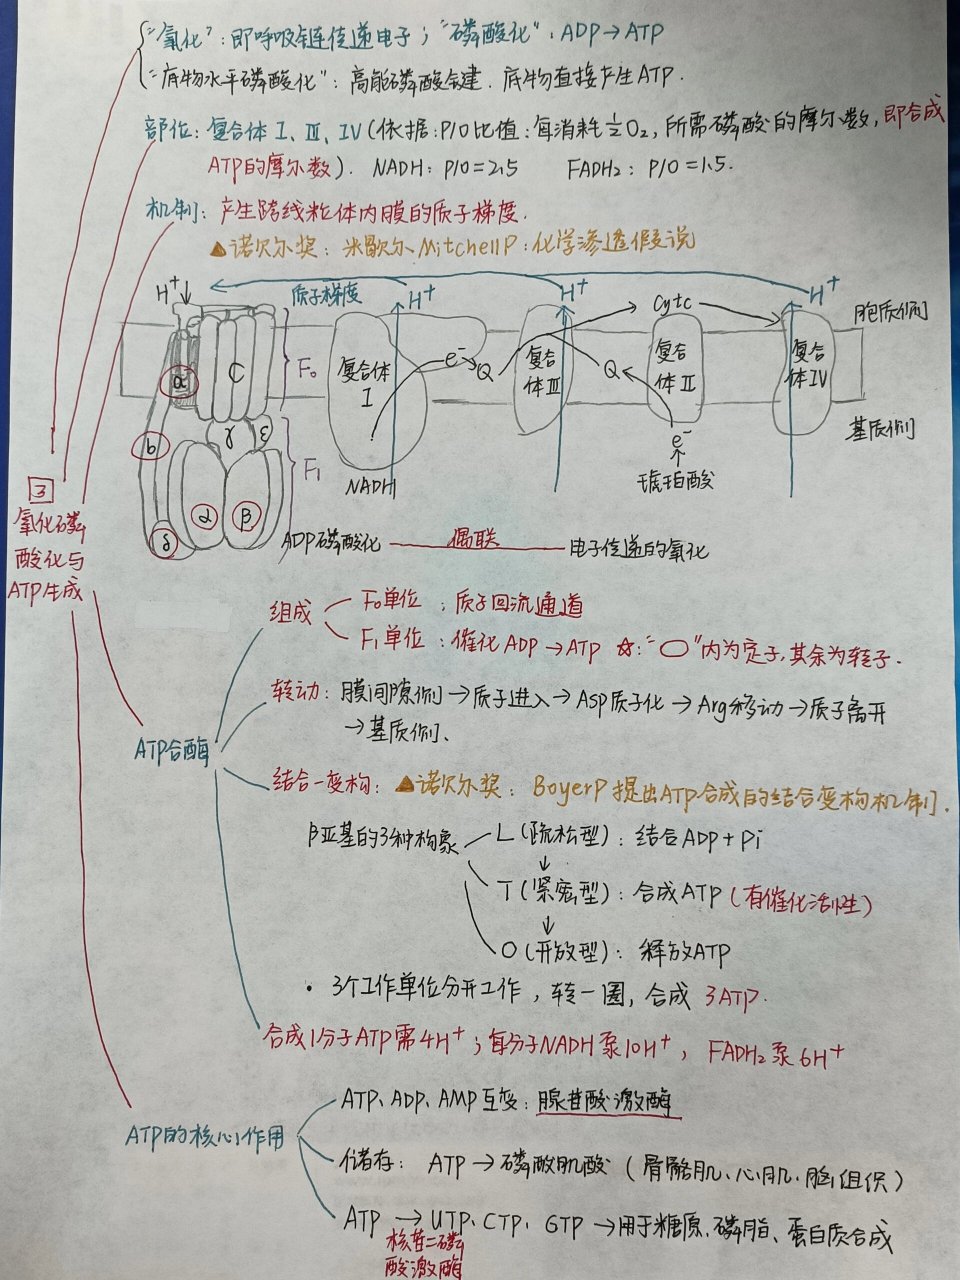 “氧化”：即呼吸链传递电子；“磷酸化”：ADP→ATP
“底物水平磷酸化”：高能磷酸键．底物直接产生ATP．
部位：复合体 I、III、IV（依据：P/O比值：每消耗½O₂，所需磷酸的摩尔数，即合成
ATP的摩尔数）. NADH：P/O=2.5 FADH₂：P/O=1.5.
机制：产生跨线粒体内膜的质子梯度．
▲诺贝尔奖：米歇尔 Mitchell P：化学渗透假说
H⁺ 质子梯度 H⁺ H⁺ Cytc H⁺ 胞质侧
a C F₀ 复合体 I e⁻ Q 复合体 III Q 复合体 II 复合体 IV
b γ ε F₁ 基质侧
NADH e⁻
δ α β 琥珀酸
ADP磷酸化 偶联 电子传递的氧化
3
氧化磷
酸化与
ATP生成
组成 F₀单位：质子回流通道
F₁单位：催化 ADP→ATP ☆：“○”内为定子，其余为转子．
转动：膜间隙侧→质子进入→Asp质子化→Arg移动→质子离开
→基质侧、
ATP合酶
结合-变构：▲诺贝尔奖：Boyer P 提出ATP合成的结合变构机制．
β亚基的3种构象 L（疏松型）：结合ADP+Pi
↓
T（紧密型）：合成ATP（有催化活性）
↓
O（开放型）：释放ATP
• 3个工作单位分开工作，转一圈，合成 3ATP．
合成1分子ATP需4H⁺；每分子NADH泵10H⁺， FADH₂泵6H⁺
ATP的核心作用
ATP、ADP、AMP互变：腺苷酸激酶
储存： ATP→磷酸肌酸（骨骼肌、心肌、脑组织）
ATP → UTP、CTP、GTP→用于糖原、磷脂、蛋白质合成
核苷二磷
酸激酶